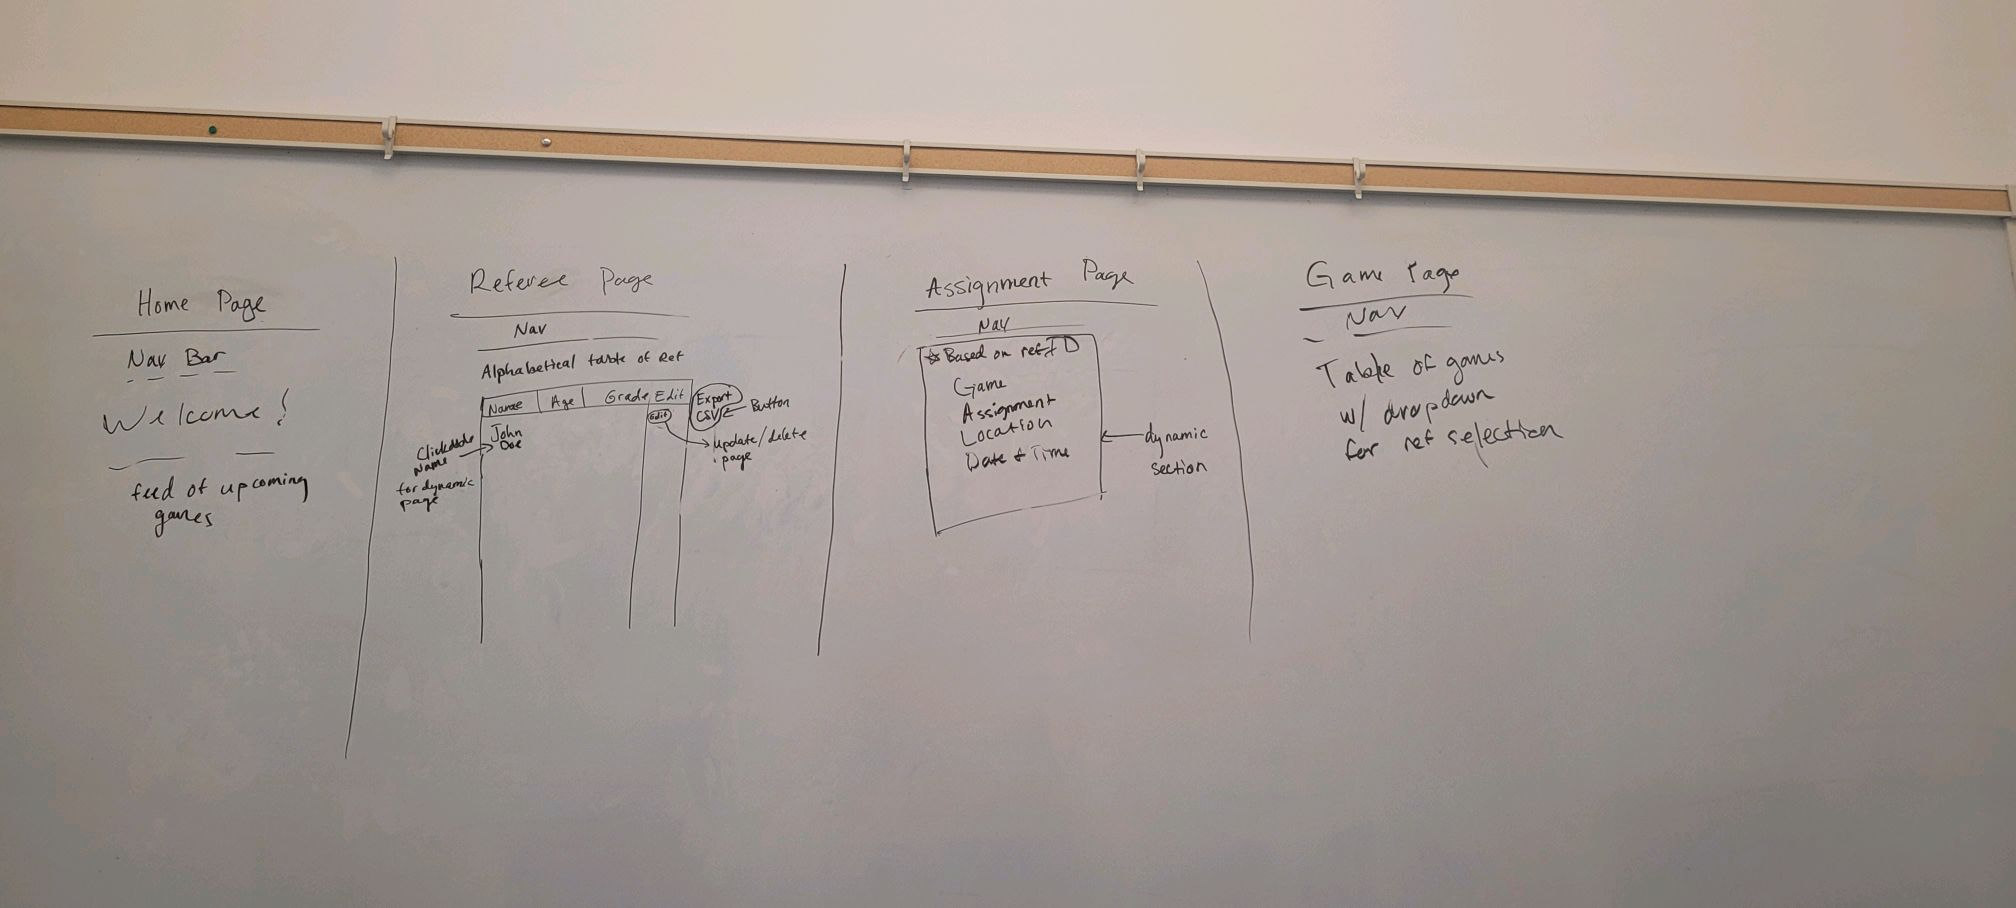 Home Page
Nav Bar
Welcome!
feed of upcoming
games
Referee Page
Nav
Alphabetical table of Ref
Name Age Grade Edit
Export
CSV
Button
Edit
John
Doe
Clickable
Name
for dynamic
page
update/delete
page
Assignment Page
Nav
Based on ref ID
Game
Assignment
Location
Date + Time
dynamic
section
Game Page
Nav
Table of games
w/ dropdown
for ref selection